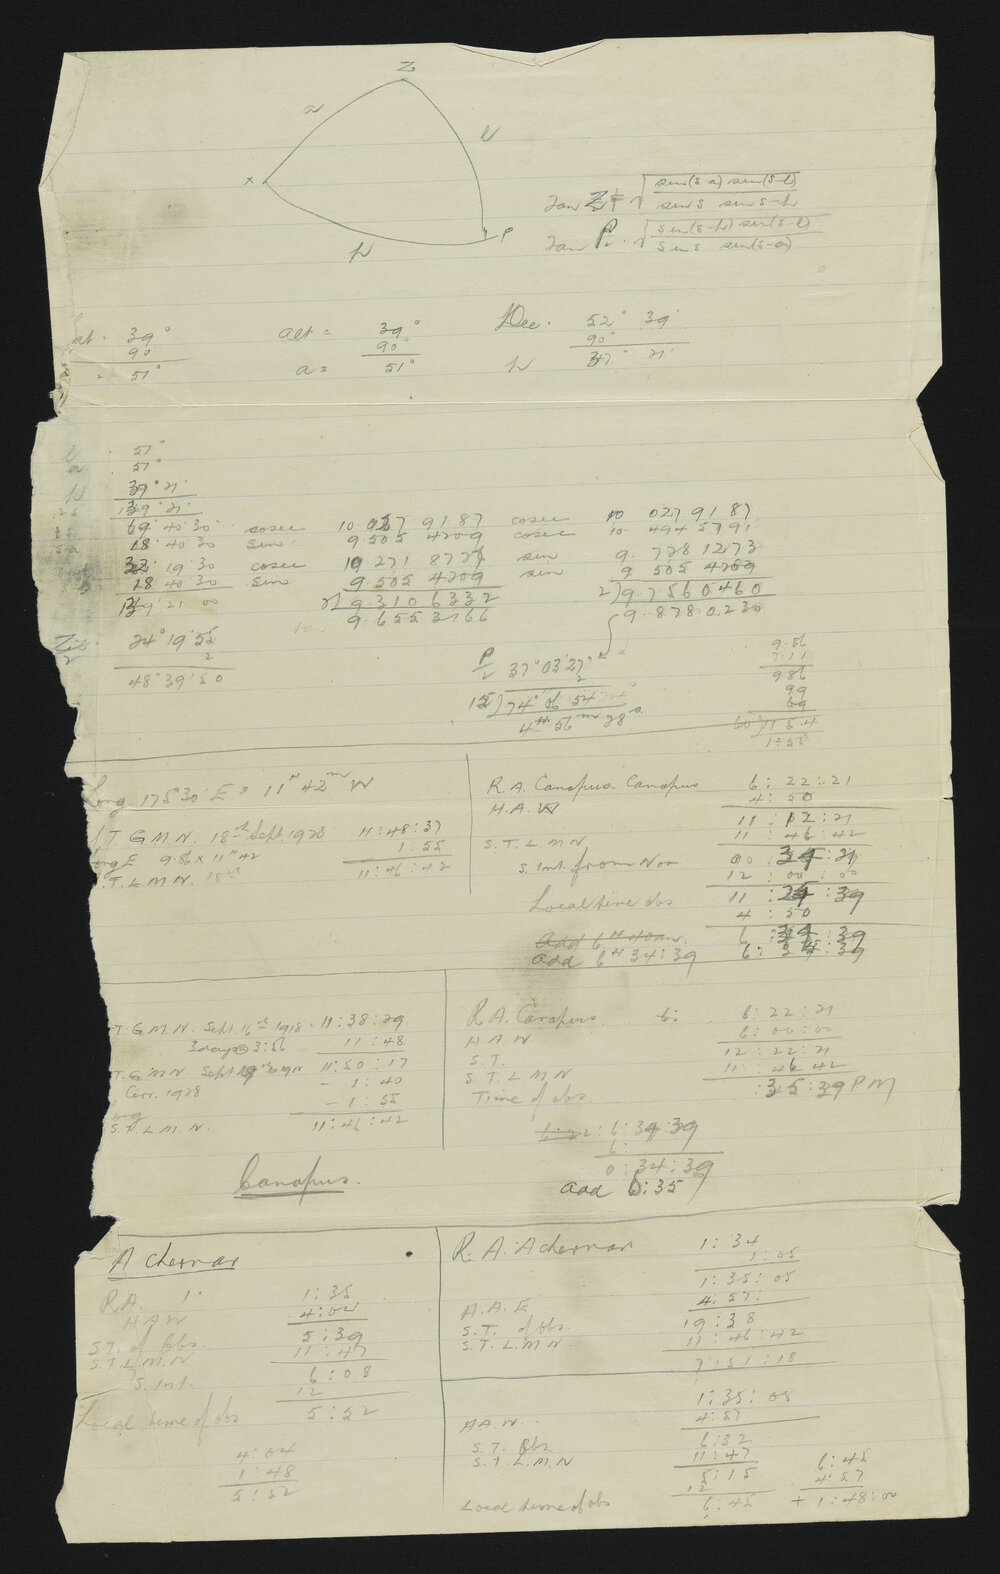 Z
a
l
x
P
h
Tan Z/2 √ sin(s-a) sin(s-l)
sin s sin s-h
Tan P/2 . √ sin(s-h) sin(s-l)
sin s sin(s-a)
Lat = 39°
90
= 51°
alt = 39°
90°
a = 51°
Dec. 52° 39'
90°
h 37° 21'
l 51°
a 51°
h 37° 21'
2s 139° 21'
69° 40' 30 cosec 10 027 91 87 cosec 10 027 91 87
18 40 30 sin 9.505 4209 cosec 10 494 5791
32 19 30 cosec 10 271 872 sin 9. 728 1273
18 40 30 sin 9.505 4209 sin 9 505 4209
139 21 00 2) 9.310 6332 2) 9.7560460
9.655 3166 9.878 0230
24° 19' 55
2
48° 39' 50
P/2 37° 03' 27"
2
15) 74° 06 54
4 H 56 m 28 s
9.86
7.11
986
99
69
60) 115.4
1:55
Long 175° 30' E = 11 H 42 m W
S.T. G.M.N. 18th Sept. 1928 11:48:37
Long E 9.86 x 11 H 42 1:55
S.T.L.M.N. 18th 11:46:42
R.A. Canopus Canopus 6: 22:21
H.A.W 4: 50
11: 12: 21
S.T.L.M.N 11: 46: 42
S. Int. from Noo 00: 34: 21
12: 00: 00
Local time obs 11: 25: 39
4: 50
6 : 34 : 39
add 6 H 40 m.
add 6 H 34:39 6: 35: 39
S.T. G.M.N. Sept 16th 1918. 11:38:29
3 days @ 3:56 11:48
S.T. G.M.N. Sept 19th 11:50:17
Corr. 1928 - 1:40
Long - 1:55
S.T.L.M.N. 11:46:42
R.A. Canopus 6: 6: 22:21
H.A.W 6: 00:00
S.T. 12: 22: 21
S.T.L.M.N 11: 46 42
Time of obs. : 35:39 PM
6:22: 6:34:39
6:
0:34:39
add 6:35
Canopus.
Achernar
R.A. 1: 1:35
H A W 4:04
S.T. of Obs 5:39
S.T.L.M.N 11:47
S. Int. 6:08
12
Local time of obs 5:52
4:04
1:48
5:52
R.A. Achernar 1:34
1:05
1:35:05
H.A.E 4:57:
S.T. of obs. 19:38
S.T.L.M.N 11:46:42
7:51:18
1:35:05
H A W. 4:57
S.T. Obs 6:32
S.T.L.M.N 11:47
5:15
12
Local time of obs 6:45
6:45
4:57
+ 1:48:00